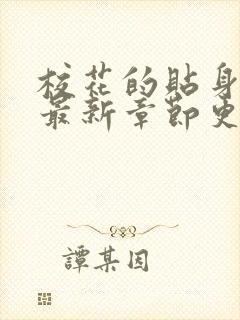 校花的貼身
最新章節更
譚某因